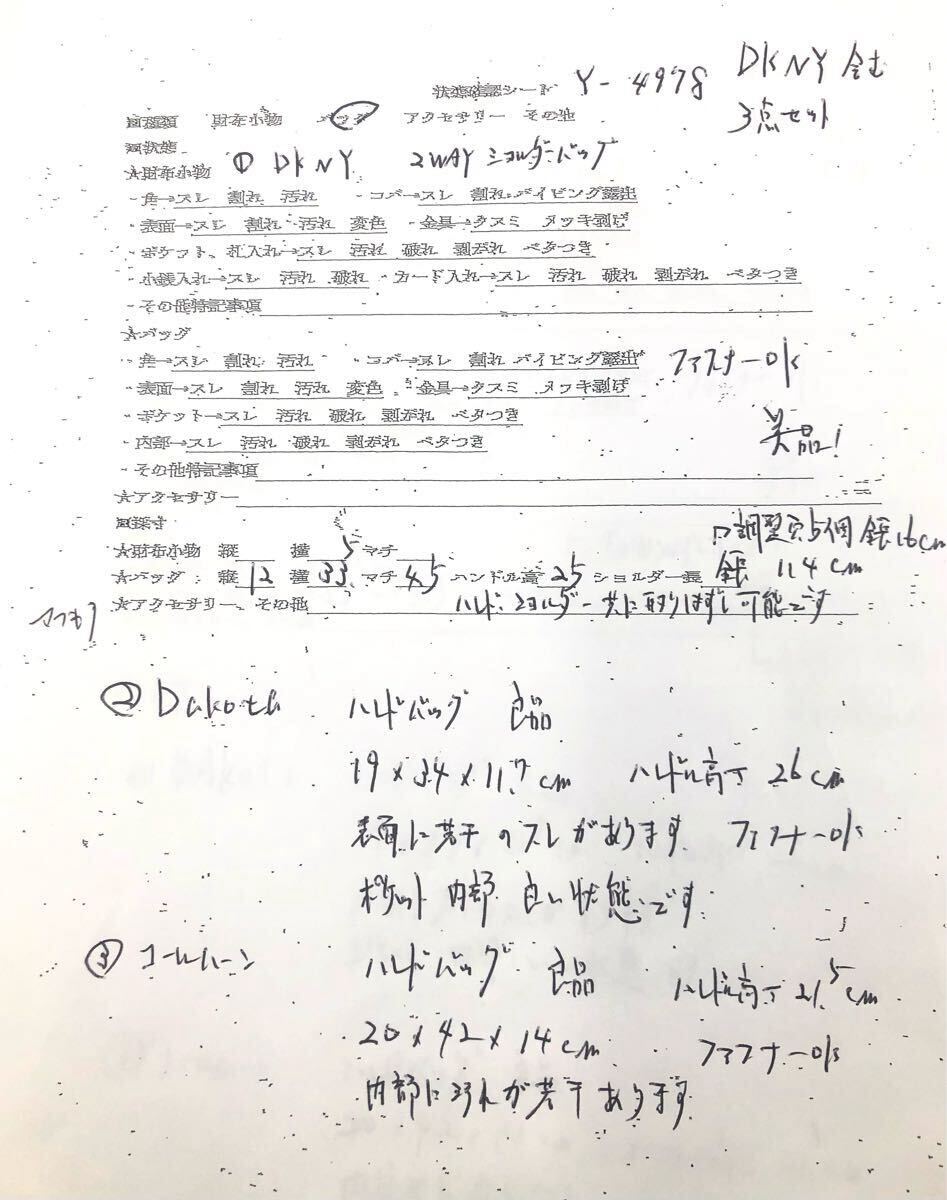 状態確認シート Y-4978 DKNY 含む
3点セット
□種類 財布小物 バッグ アクセサリー その他
□状態
☆財布小物 ① DKNY 2WAY ショルダーバッグ
・角→スレ 割れ 汚れ ・コバ→スレ 割れ パイピング露出
・表面→スレ 割れ 汚れ 変色 ・金具→クスミ メッキ剥げ
・ポケット、札入れ→スレ 汚れ 破れ 剥がれ ベタつき
・小銭入れ→スレ 汚れ 破れ ・カード入れ→スレ 汚れ 破れ 剥がれ ベタつき
・その他特記事項
☆バッグ
・角→スレ 割れ 汚れ ・コバ→スレ 割れ パイピング露出 ファスナーok
・表面→スレ 割れ 汚れ 変色 ・金具→クスミ メッキ剥げ
・ポケット→スレ 汚れ 破れ 剥がれ ベタつき
・内部→スレ 汚れ 破れ 剥がれ ベタつき 美品!
・その他特記事項
☆アクセサリー
□採寸
☆財布小物 縦 横 マチ
☆バッグ:縦 12 横 33.5 マチ 4.5 ハンドル高 25 ショルダー長 114cm
☆アクセサリー、その他 ハンドル・ショルダー共に取りはずし可能です
② Dakota ハンドバッグ 良品
19×34×11.7cm ハンドル高さ 26cm
表面に若干のスレがあります ファスナーok
ポケット 内部 良い状態です
③ コールハーン ハンドバッグ 良品 ハンドル高さ 21.5cm
20×42×14cm ファスナーok
内部に汚れが若干あります